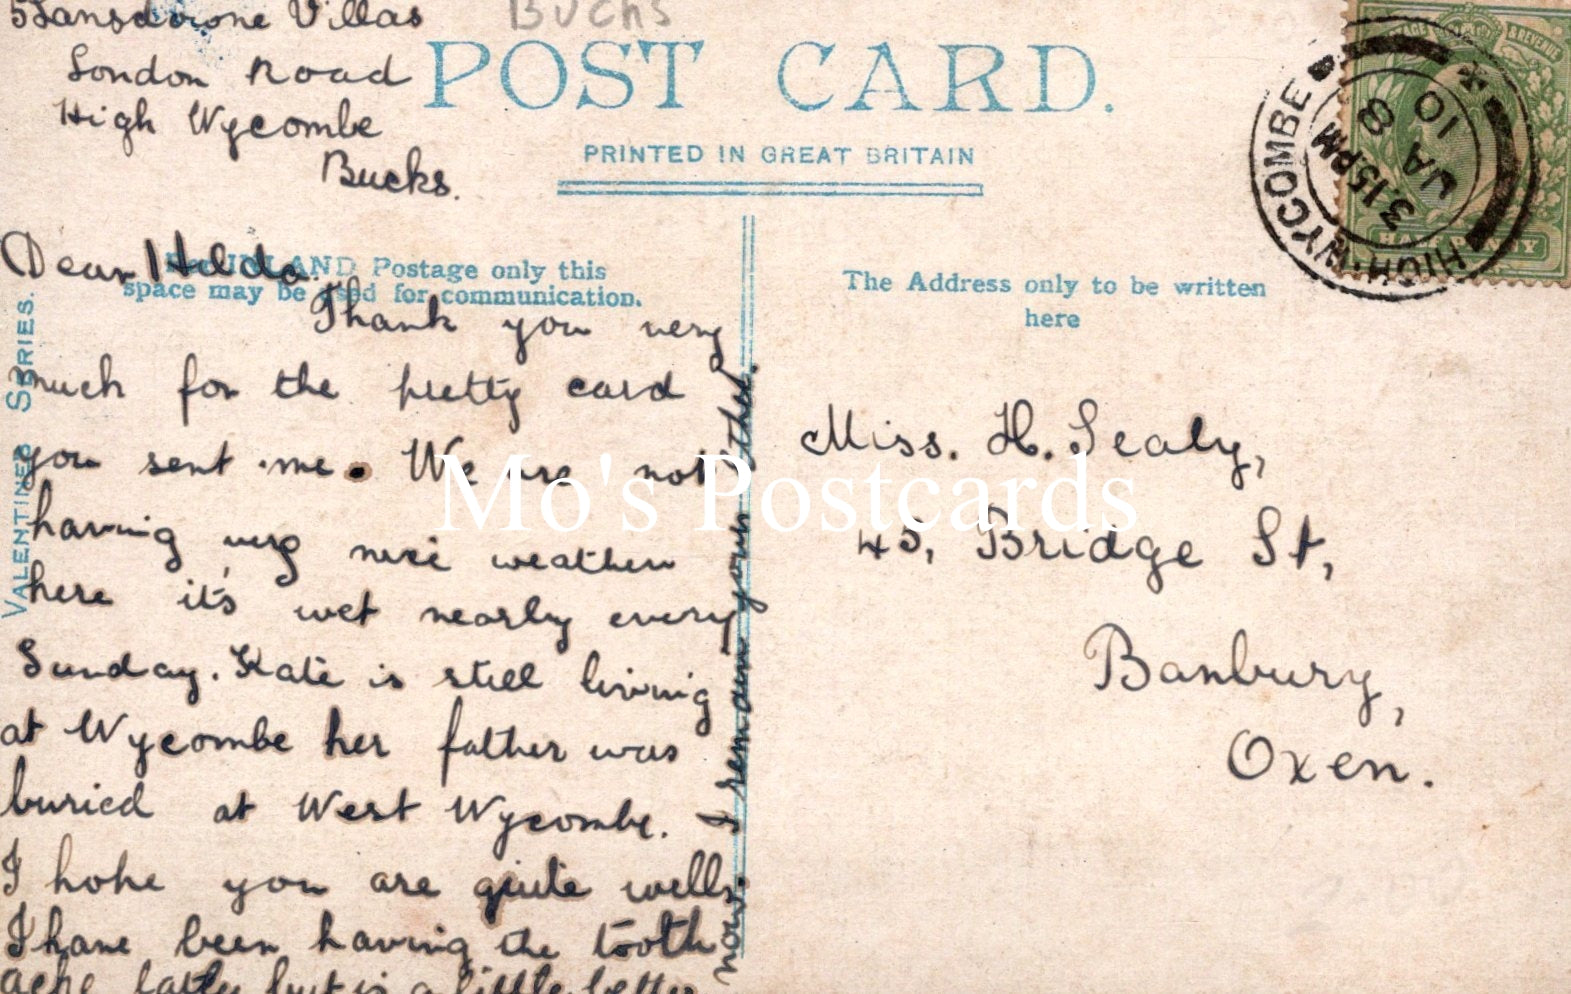 5 Lansdowne Villas
London Road
High Wycombe
Bucks.
Bucks
POST CARD.
PRINTED IN GREAT BRITAIN
HIGH-WYCOMBE
3.15PM
8 JA
10
POSTAGE & REVENUE
HALFPENNY
For INLAND Postage only this
space may be used for communication.
The Address only to be written
here
VALENTINES SERIES.
Dear Hilda.
Thank you very
much for the pretty card
you sent me. We are not
having very nice weather
here it's wet nearly every
Sunday. Kate is still living
at Wycombe her father was
buried at West Wycombe.
I hope you are quite well.
I have been having the tooth
ache lately but is a little better
now I remain your
Miss. H. Sealy,
45, Bridge St,
Banbury,
Oxen.
Mo's Postcards